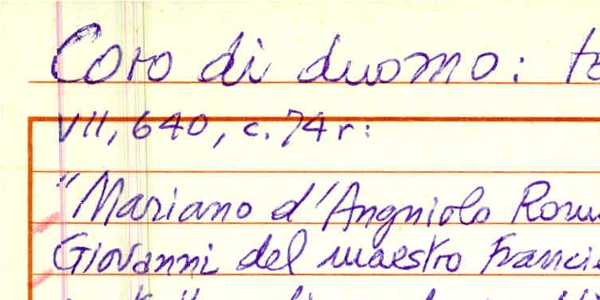 Coro di duomo:
VII, 640, c. 74r:
"Mariano d'Angniolo
Giovanni del maestro